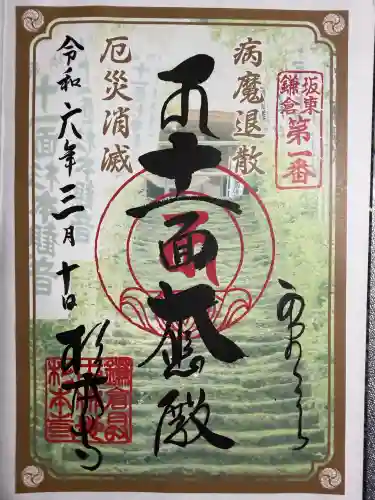 坂東
鎌倉
第一番
病魔退散
厄災消滅
十一面大悲殿
令和六年三月十日
杉本寺